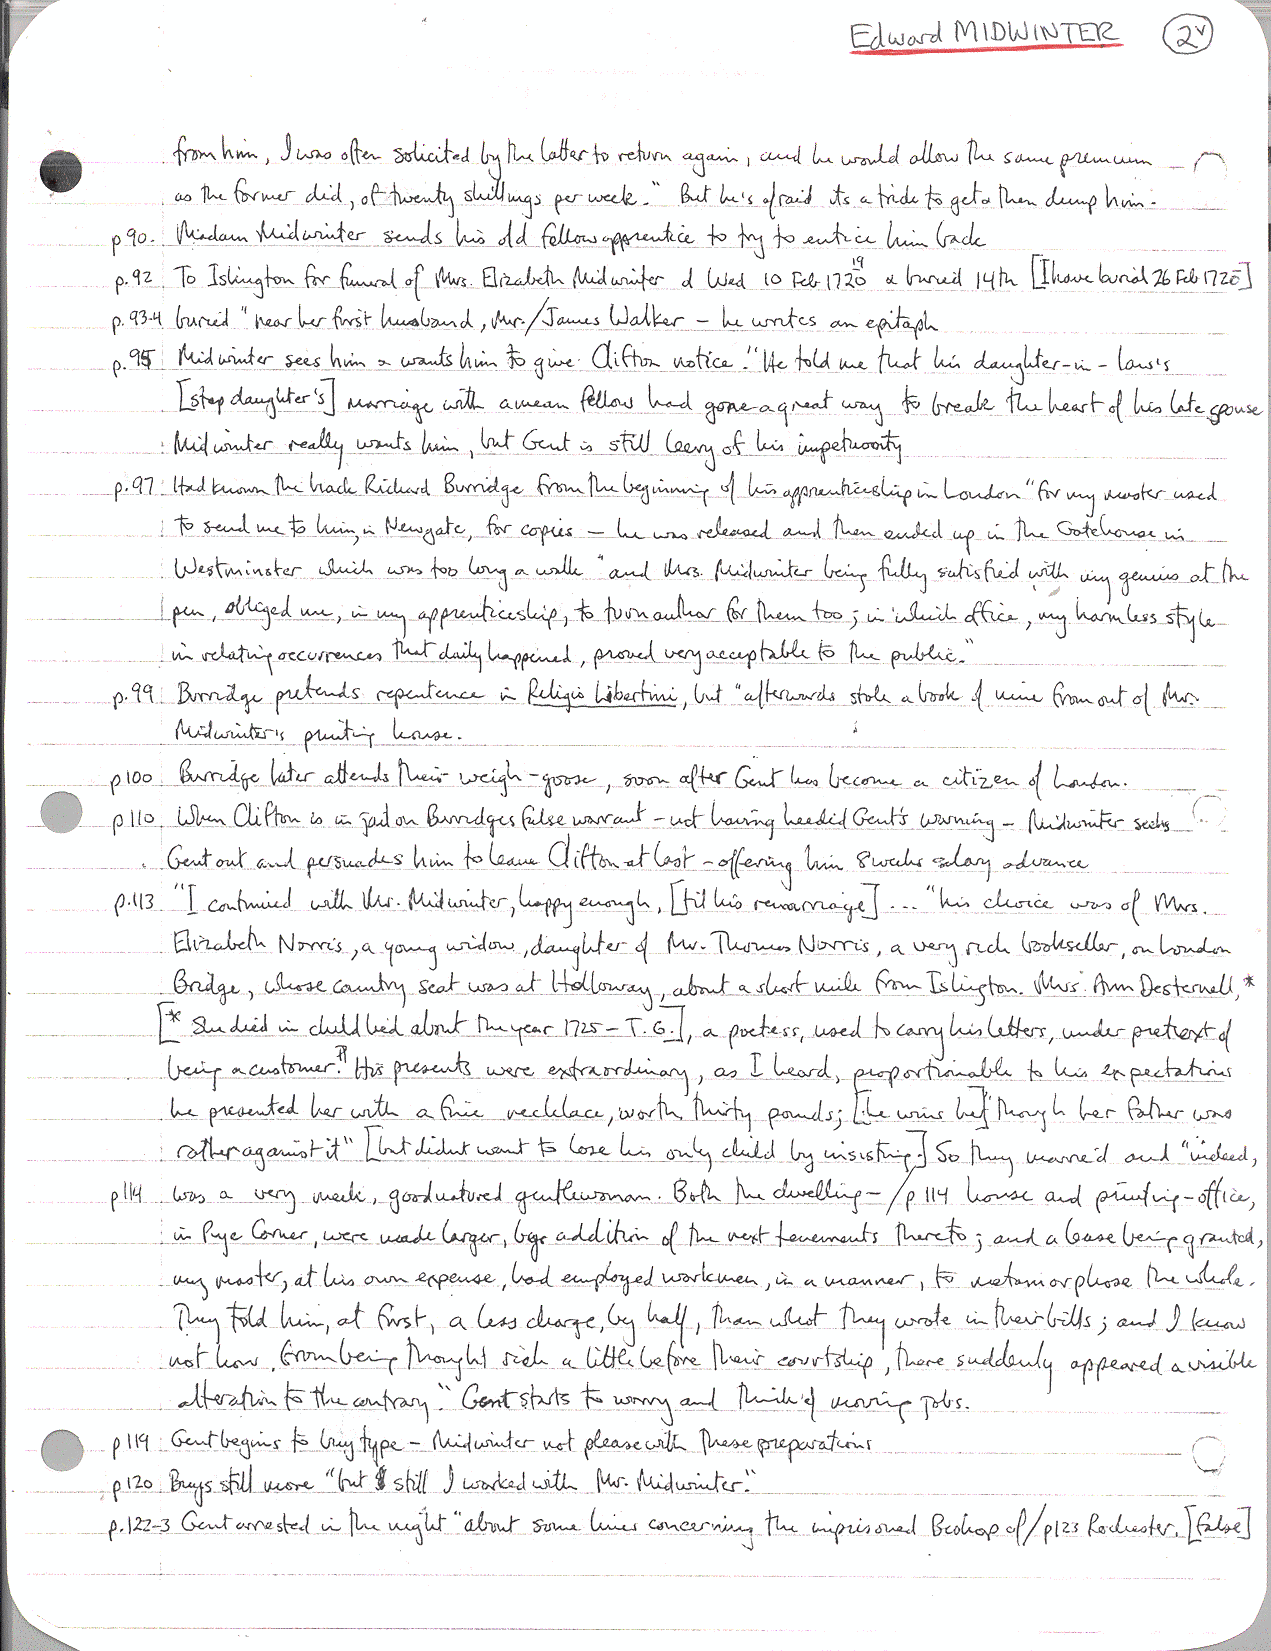 Edward MIDWINTER 2v
from him, I was often solicited by the latter to return again, and he would allow the same premium
as the former did, of twenty shillings per week." But he's afraid its a trick to get & then dump him.
p 90. Madam Midwinter sends his old fellow apprentice to try to entice him back
p.92 To Islington for funeral of Mrs. Elizabeth Midwinter d Wed 10 Feb 17 19/20 & buried 14th [I have burial 26 Feb 1720]
p.93-4 buried "near her first husband, Mr./James Walker – he writes an epitaph
p.95 Midwinter sees him & wants him to give Clifton notice. "He told me that his daughter-in-law's
[step daughter's] marriage with a mean fellow had gone a great way to break the heart of his late spouse
Midwinter really wants him, but Gent is still leery of his impetuosity
p.97 Had known the hack Richard Burridge from the beginning of his apprenticeship in London "for my master used
to send me to him, in Newgate, for copies – he was released and then ended up in the Gatehouse in
Westminster which was too long a walk "and Mrs. Midwinter being fully satisfied with my genius at the
pen, obliged me, in my apprenticeship, to turn author for them too; in which office, my harmless style
in relating occurrences that daily happened, proved very acceptable to the public."
p.99 Burridge pretends repentence in Religio Libertini, but "afterwards stole a book of mine from out of Mr.
Midwinter's printing house.
p100 Burridge later attends their weigh-goose, soon after Gent has become a citizen of London.
p110 When Clifton is in jail on Burridges false warrant – not having heeded Gent's warning – Midwinter seeks
Gent out and persuades him to leave Clifton at last – offering him 8 weeks salary advance
p.113 "I continued with Mr. Midwinter, happy enough, [til his remarriage] ... "his choice was of Mrs.
Elizabeth Norris, a young widow, daughter of Mr. Thomas Norris, a very rich bookseller, on London
Bridge, whose country seat was at Holloway, about a short mile from Islington. Mrs. Ann Desternell,*
[* She died in childbed about the year 1725 – T.G.], a poetess, used to carry his letters, under pretext of
being a customer." His presents were extraordinary, as I heard, proportionable to his expectations
he presented her with a fine necklace, worth thirty pounds; [he wins her] "though her father was
rather against it" [but didnt want to lose his only child by insisting.] So they married and "indeed,
p114 was a very meek, goodnatured gentlewoman. Both the dwelling-/p 114 house and printing-office,
in Pye Corner, were made larger, by addition of the next tenements thereto; and a lease being granted,
my master, at his own expense, had employed workmen, in a manner, to metamorphose the whole.
They told him, at first, a less charge, by half, than what they wrote in their bills; and I know
not how, from being thought rich a little before their courtship, there suddenly appeared a visible
alteration to the contrary." Gent starts to worry and think of moving jobs.
p119 Gent begins to buy type – Midwinter not please with these preparations
p120 Buys still more "but still I worked with Mr. Midwinter."
p.122-3 Gent arrested in the night "about some lines concerning the imprisoned Bishop of/p123 Rochester. [false]